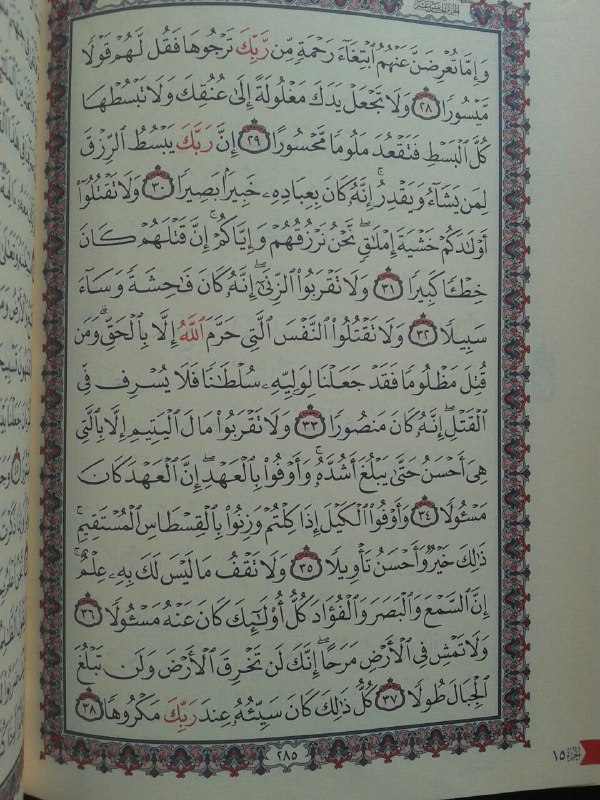 وَإِمَّا تُعْرِضَنَّ عَنْهُمُ ٱبْتِغَآءَ رَحْمَةٍ مِّن رَّبِّكَ تَرْجُوهَا فَقُل لَّهُمْ قَوْلًا
مَّيْسُورًا ٢٨ وَلَا تَجْعَلْ يَدَكَ مَغْلُولَةً إِلَىٰ عُنُقِكَ وَلَا تَبْسُطْهَا
كُلَّ ٱلْبَسْطِ فَتَقْعُدَ مَلُومًا مَّحْسُورًا ٢٩ إِنَّ رَبَّكَ يَبْسُطُ ٱلرِّزْقَ
لِمَن يَشَآءُ وَيَقْدِرُ ۚ إِنَّهُۥ كَانَ بِعِبَادِهِۦ خَبِيرًۢا بَصِيرًا ٣٠ وَلَا تَقْتُلُوٓا۟
أَوْلَـٰدَكُمْ خَشْيَةَ إِمْلَـٰقٍ ۖ نَّحْنُ نَرْزُقُهُمْ وَإِيَّاكُمْ ۚ إِنَّ قَتْلَهُمْ كَانَ
خِطْـًٔا كَبِيرًا ٣١ وَلَا تَقْرَبُوا۟ ٱلزِّنَىٰٓ ۖ إِنَّهُۥ كَانَ فَـٰحِشَةً وَسَآءَ
سَبِيلًا ٣٢ وَلَا تَقْتُلُوا۟ ٱلنَّفْسَ ٱلَّتِى حَرَّمَ ٱللَّهُ إِلَّا بِٱلْحَقِّ ۗ وَمَن
قُتِلَ مَظْلُومًا فَقَدْ جَعَلْنَا لِوَلِيِّهِۦ سُلْطَـٰنًا فَلَا يُسْرِف فِّى
ٱلْقَتْلِ ۖ إِنَّهُۥ كَانَ مَنصُورًا ٣٣ وَلَا تَقْرَبُوا۟ مَالَ ٱلْيَتِيمِ إِلَّا بِٱلَّتِى
هِىَ أَحْسَنُ حَتَّىٰ يَبْلُغَ أَشُدَّهُۥ ۚ وَأَوْفُوا۟ بِٱلْعَهْدِ ۖ إِنَّ ٱلْعَهْدَ كَانَ
مَسْـُٔولًا ٣٤ وَأَوْفُوا۟ ٱلْكَيْلَ إِذَا كِلْتُمْ وَزِنُوا۟ بِٱلْقِسْطَاسِ ٱلْمُسْتَقِيمِ ۚ
ذَٰلِكَ خَيْرٌ وَأَحْسَنُ تَأْوِيلًا ٣٥ وَلَا تَقْفُ مَا لَيْسَ لَكَ بِهِۦ عِلْمٌ ۚ
إِنَّ ٱلسَّمْعَ وَٱلْبَصَرَ وَٱلْفُؤَادَ كُلُّ أُو۟لَـٰٓئِكَ كَانَ عَنْهُ مَسْـُٔولًا ٣٦
وَلَا تَمْشِ فِى ٱلْأَرْضِ مَرَحًا ۖ إِنَّكَ لَن تَخْرِقَ ٱلْأَرْضَ وَلَن تَبْلُغَ
ٱلْجِبَالَ طُولًا ٣٧ كُلُّ ذَٰلِكَ كَانَ سَيِّئُهُۥ عِندَ رَبِّكَ مَكْرُوهًا ٣٨
٢٨٥
الجزء ١٥